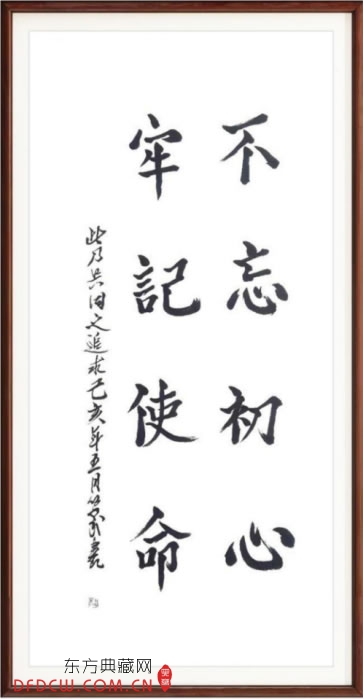 不忘初心
牢記使命
此乃共同之追求己亥年五月
东方典藏网
DFDCW.COM.CN